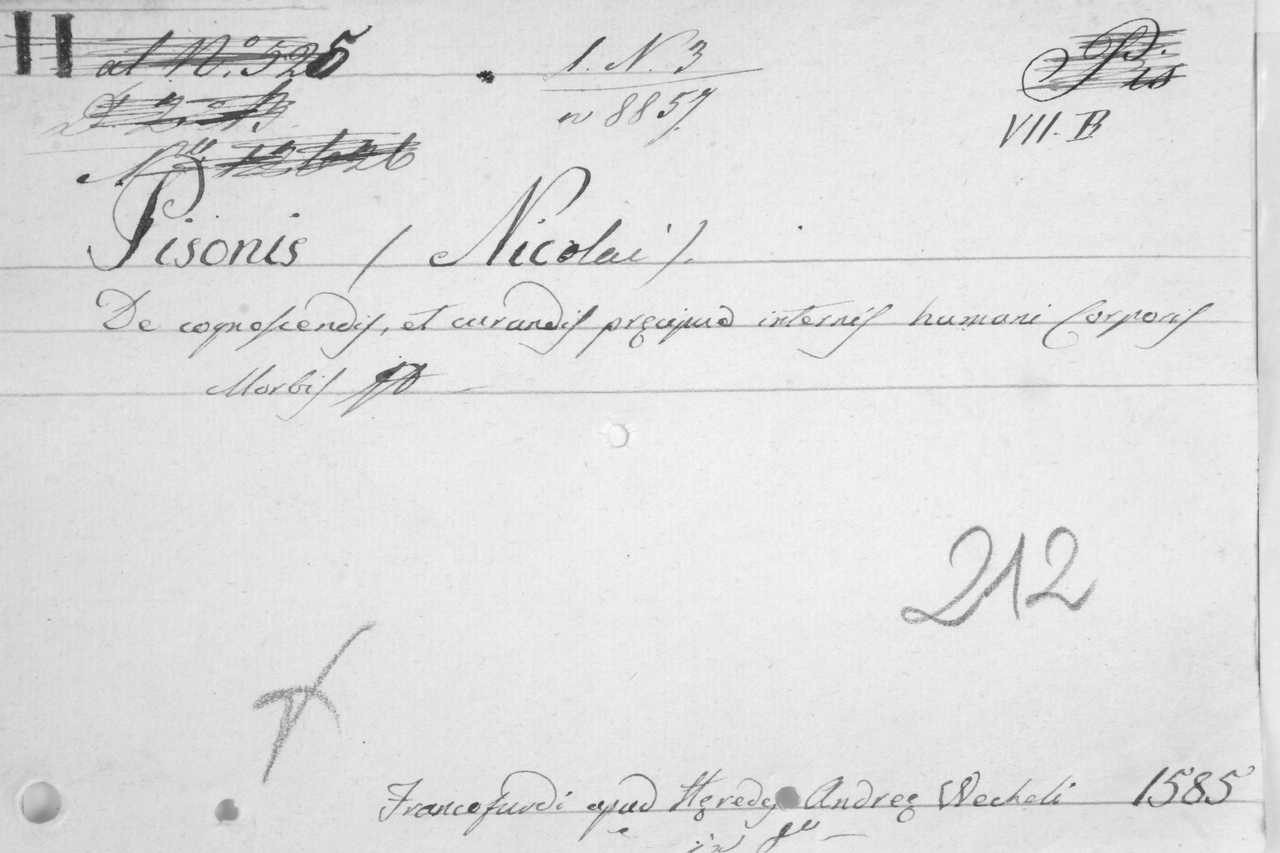 II al No. 525 1. N. 3 P. is
n 8857. VII. B
No. 12626
Pisonis (Nicolai).
De cognoscendis, et curandis pręcipue internis humani Corporis
Morbis
212
Francofurdi apud Hęredes Andreę Wecheli 1585
in 8o